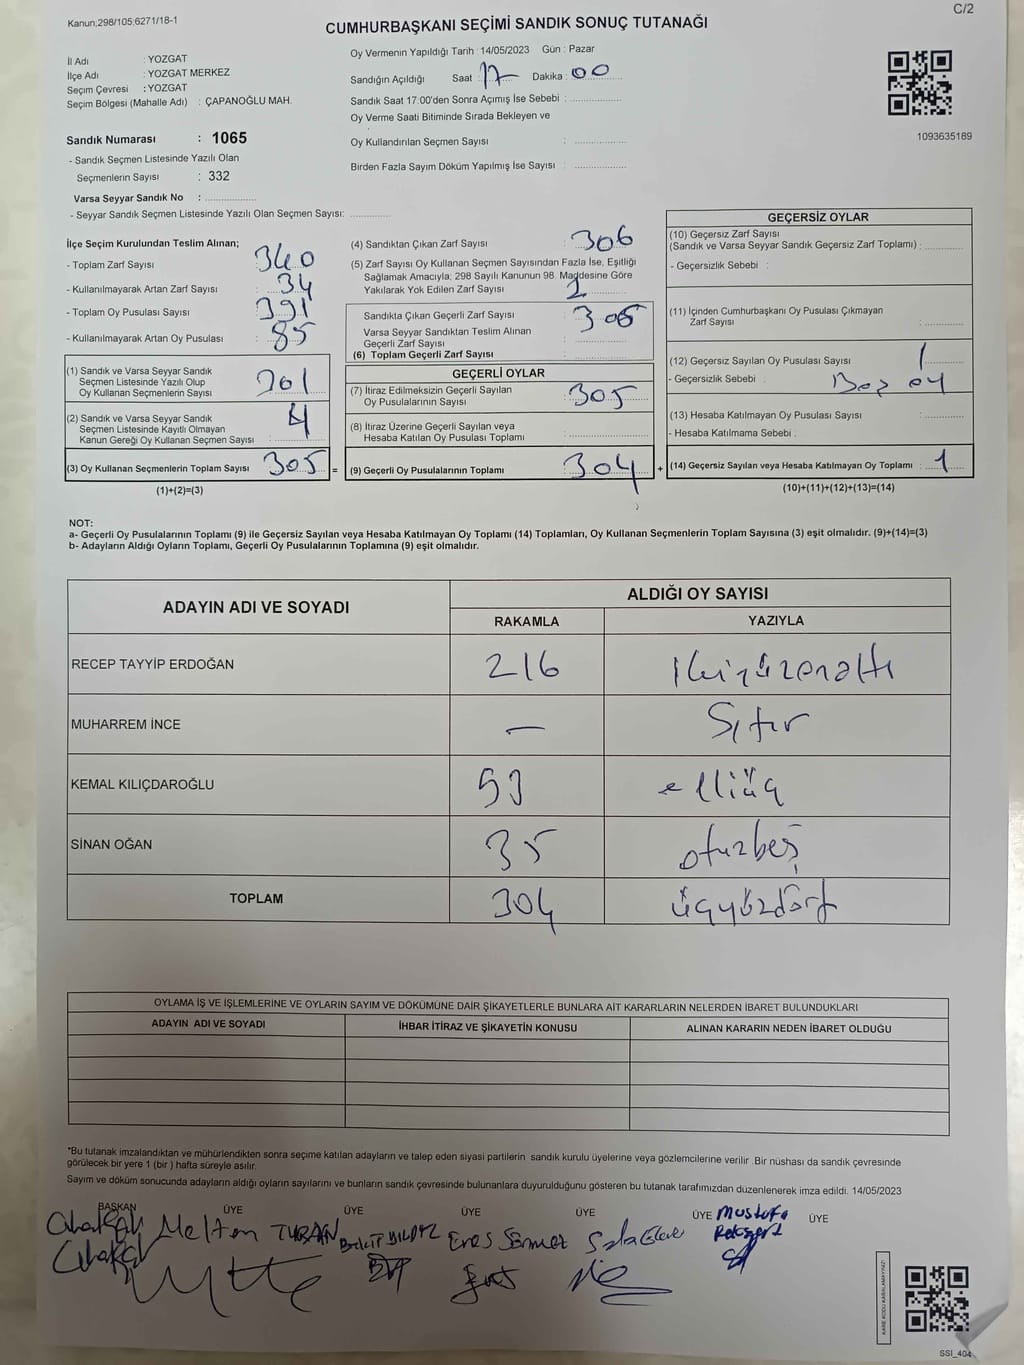 Kanun;298/105;6271/18-1
C/2
CUMHURBAŞKANI SEÇİMİ SANDIK SONUÇ TUTANAĞI
İl Adı : YOZGAT
İlçe Adı : YOZGAT MERKEZ
Seçim Çevresi : YOZGAT
Seçim Bölgesi (Mahalle Adı) : ÇAPANOĞLU MAH.
Sandık Numarası : 1065
- Sandık Seçmen Listesinde Yazılı Olan
Seçmenlerin Sayısı : 332
Varsa Seyyar Sandık No :
- Seyyar Sandık Seçmen Listesinde Yazılı Olan Seçmen Sayısı:
Oy Vermenin Yapıldığı Tarih : 14/05/2023 Gün : Pazar
Sandığın Açıldığı Saat : 17 Dakika : 00
Sandık Saat 17:00'den Sonra Açımış İse Sebebi :
Oy Verme Saati Bitiminde Sırada Bekleyen ve
Oy Kullandırılan Seçmen Sayısı :
Birden Fazla Sayım Döküm Yapılmış İse Sayısı :
1093635189
İlçe Seçim Kurulundan Teslim Alınan;
- Toplam Zarf Sayısı : 340
- Kullanılmayarak Artan Zarf Sayısı : 34
- Toplam Oy Pusulası Sayısı : 391
- Kullanılmayarak Artan Oy Pusulası : 85
(1) Sandık ve Varsa Seyyar Sandık
Seçmen Listesinde Yazılı Olup
Oy Kullanan Seçmenlerin Sayısı : 301
(2) Sandık ve Varsa Seyyar Sandık
Seçmen Listesinde Kayıtlı Olmayan
Kanun Gereği Oy Kullanan Seçmen Sayısı : 4
(3) Oy Kullanan Seçmenlerin Toplam Sayısı : 305 =
(1)+(2)=(3)
(4) Sandıktan Çıkan Zarf Sayısı : 306
(5) Zarf Sayısı Oy Kullanan Seçmen Sayısından Fazla İse, Eşitliği
Sağlamak Amacıyla, 298 Sayılı Kanunun 98. Maddesine Göre
Yakılarak Yok Edilen Zarf Sayısı : 1
Sandıkta Çıkan Geçerli Zarf Sayısı : 305
Varsa Seyyar Sandıktan Teslim Alınan
Geçerli Zarf Sayısı :
(6) Toplam Geçerli Zarf Sayısı :
GEÇERLİ OYLAR
(7) İtiraz Edilmeksizin Geçerli Sayılan
Oy Pusulalarının Sayısı : 305
(8) İtiraz Üzerine Geçerli Sayılan veya
Hesaba Katılan Oy Pusulası Toplamı :
(9) Geçerli Oy Pusulalarının Toplamı : 304 +
GEÇERSİZ OYLAR
(10) Geçersiz Zarf Sayısı
(Sandık ve Varsa Seyyar Sandık Geçersiz Zarf Toplamı) :
- Geçersizlik Sebebi :
(11) İçinden Cumhurbaşkanı Oy Pusulası Çıkmayan
Zarf Sayısı :
(12) Geçersiz Sayılan Oy Pusulası Sayısı : 1
- Geçersizlik Sebebi : Boş oy
(13) Hesaba Katılmayan Oy Pusulası Sayısı :
- Hesaba Katılmama Sebebi :
(14) Geçersiz Sayılan veya Hesaba Katılmayan Oy Toplamı : 1
(10)+(11)+(12)+(13)=(14)
NOT:
a- Geçerli Oy Pusulalarının Toplamı (9) ile Geçersiz Sayılan veya Hesaba Katılmayan Oy Toplamı (14) Toplamları, Oy Kullanan Seçmenlerin Toplam Sayısına (3) eşit olmalıdır. (9)+(14)=(3)
b- Adayların Aldığı Oyların Toplamı, Geçerli Oy Pusulalarının Toplamına (9) eşit olmalıdır.
ADAYIN ADI VE SOYADI
ALDIĞI OY SAYISI
RAKAMLA YAZIYLA
RECEP TAYYİP ERDOĞAN 216 İkiyüzonaltı
MUHARREM İNCE — Sıfır
KEMAL KILIÇDAROĞLU 53 elliüç
SİNAN OĞAN 35 otuzbeş
TOPLAM 304 üçyüzdört
OYLAMA İŞ VE İŞLEMLERİNE VE OYLARIN SAYIM VE DÖKÜMÜNE DAİR ŞİKAYETLERLE BUNLARA AİT KARARLARIN NELERDEN İBARET BULUNDUKLARI
ADAYIN ADI VE SOYADI İHBAR İTİRAZ VE ŞİKAYETİN KONUSU ALINAN KARARIN NEDEN İBARET OLDUĞU
*Bu tutanak imzalandıktan ve mühürlendikten sonra seçime katılan adayların ve talep eden siyasi partilerin sandık kurulu üyelerine veya gözlemcilerine verilir. Bir nüshası da sandık çevresinde
görülecek bir yere 1 (bir) hafta süreyle asılır.
Sayım ve döküm sonucunda adayların aldığı oyların sayılarını ve bunların sandık çevresinde bulunanlara duyurulduğunu gösteren bu tutanak tarafımızdan düzenlenerek imza edildi. 14/05/2023
BAŞKAN ÜYE ÜYE ÜYE ÜYE ÜYE ÜYE
Meltem TURAN
Mustafa
KARE KODU KARALAMAYINIZ!
SSI_404